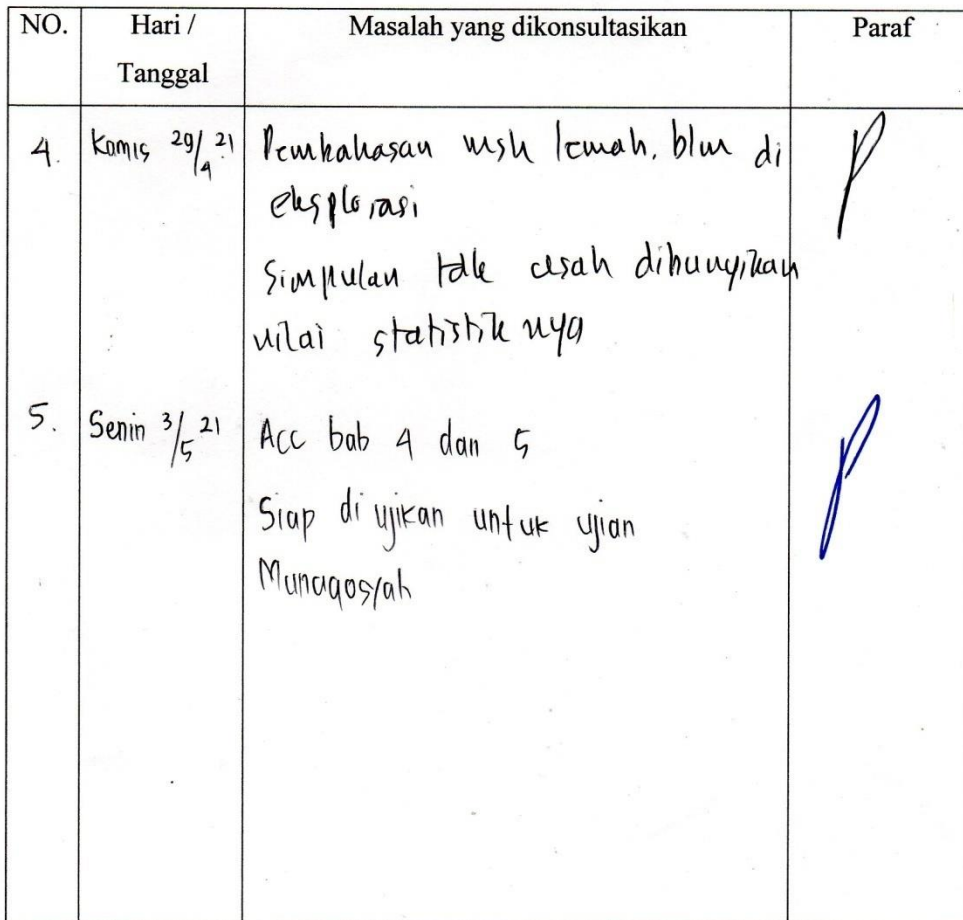 NO. Hari / Masalah yang dikonsultasikan Paraf
Tanggal
4. Kamis 29/4 21 Pembahasan msh lemah, blm di
eksplorasi
Simpulan tdk usah dibunyikan
nilai statistik nya
5. Senin 3/5 21 Acc bab 4 dan 5
Siap di ujikan untuk ujian
Munaqosyah